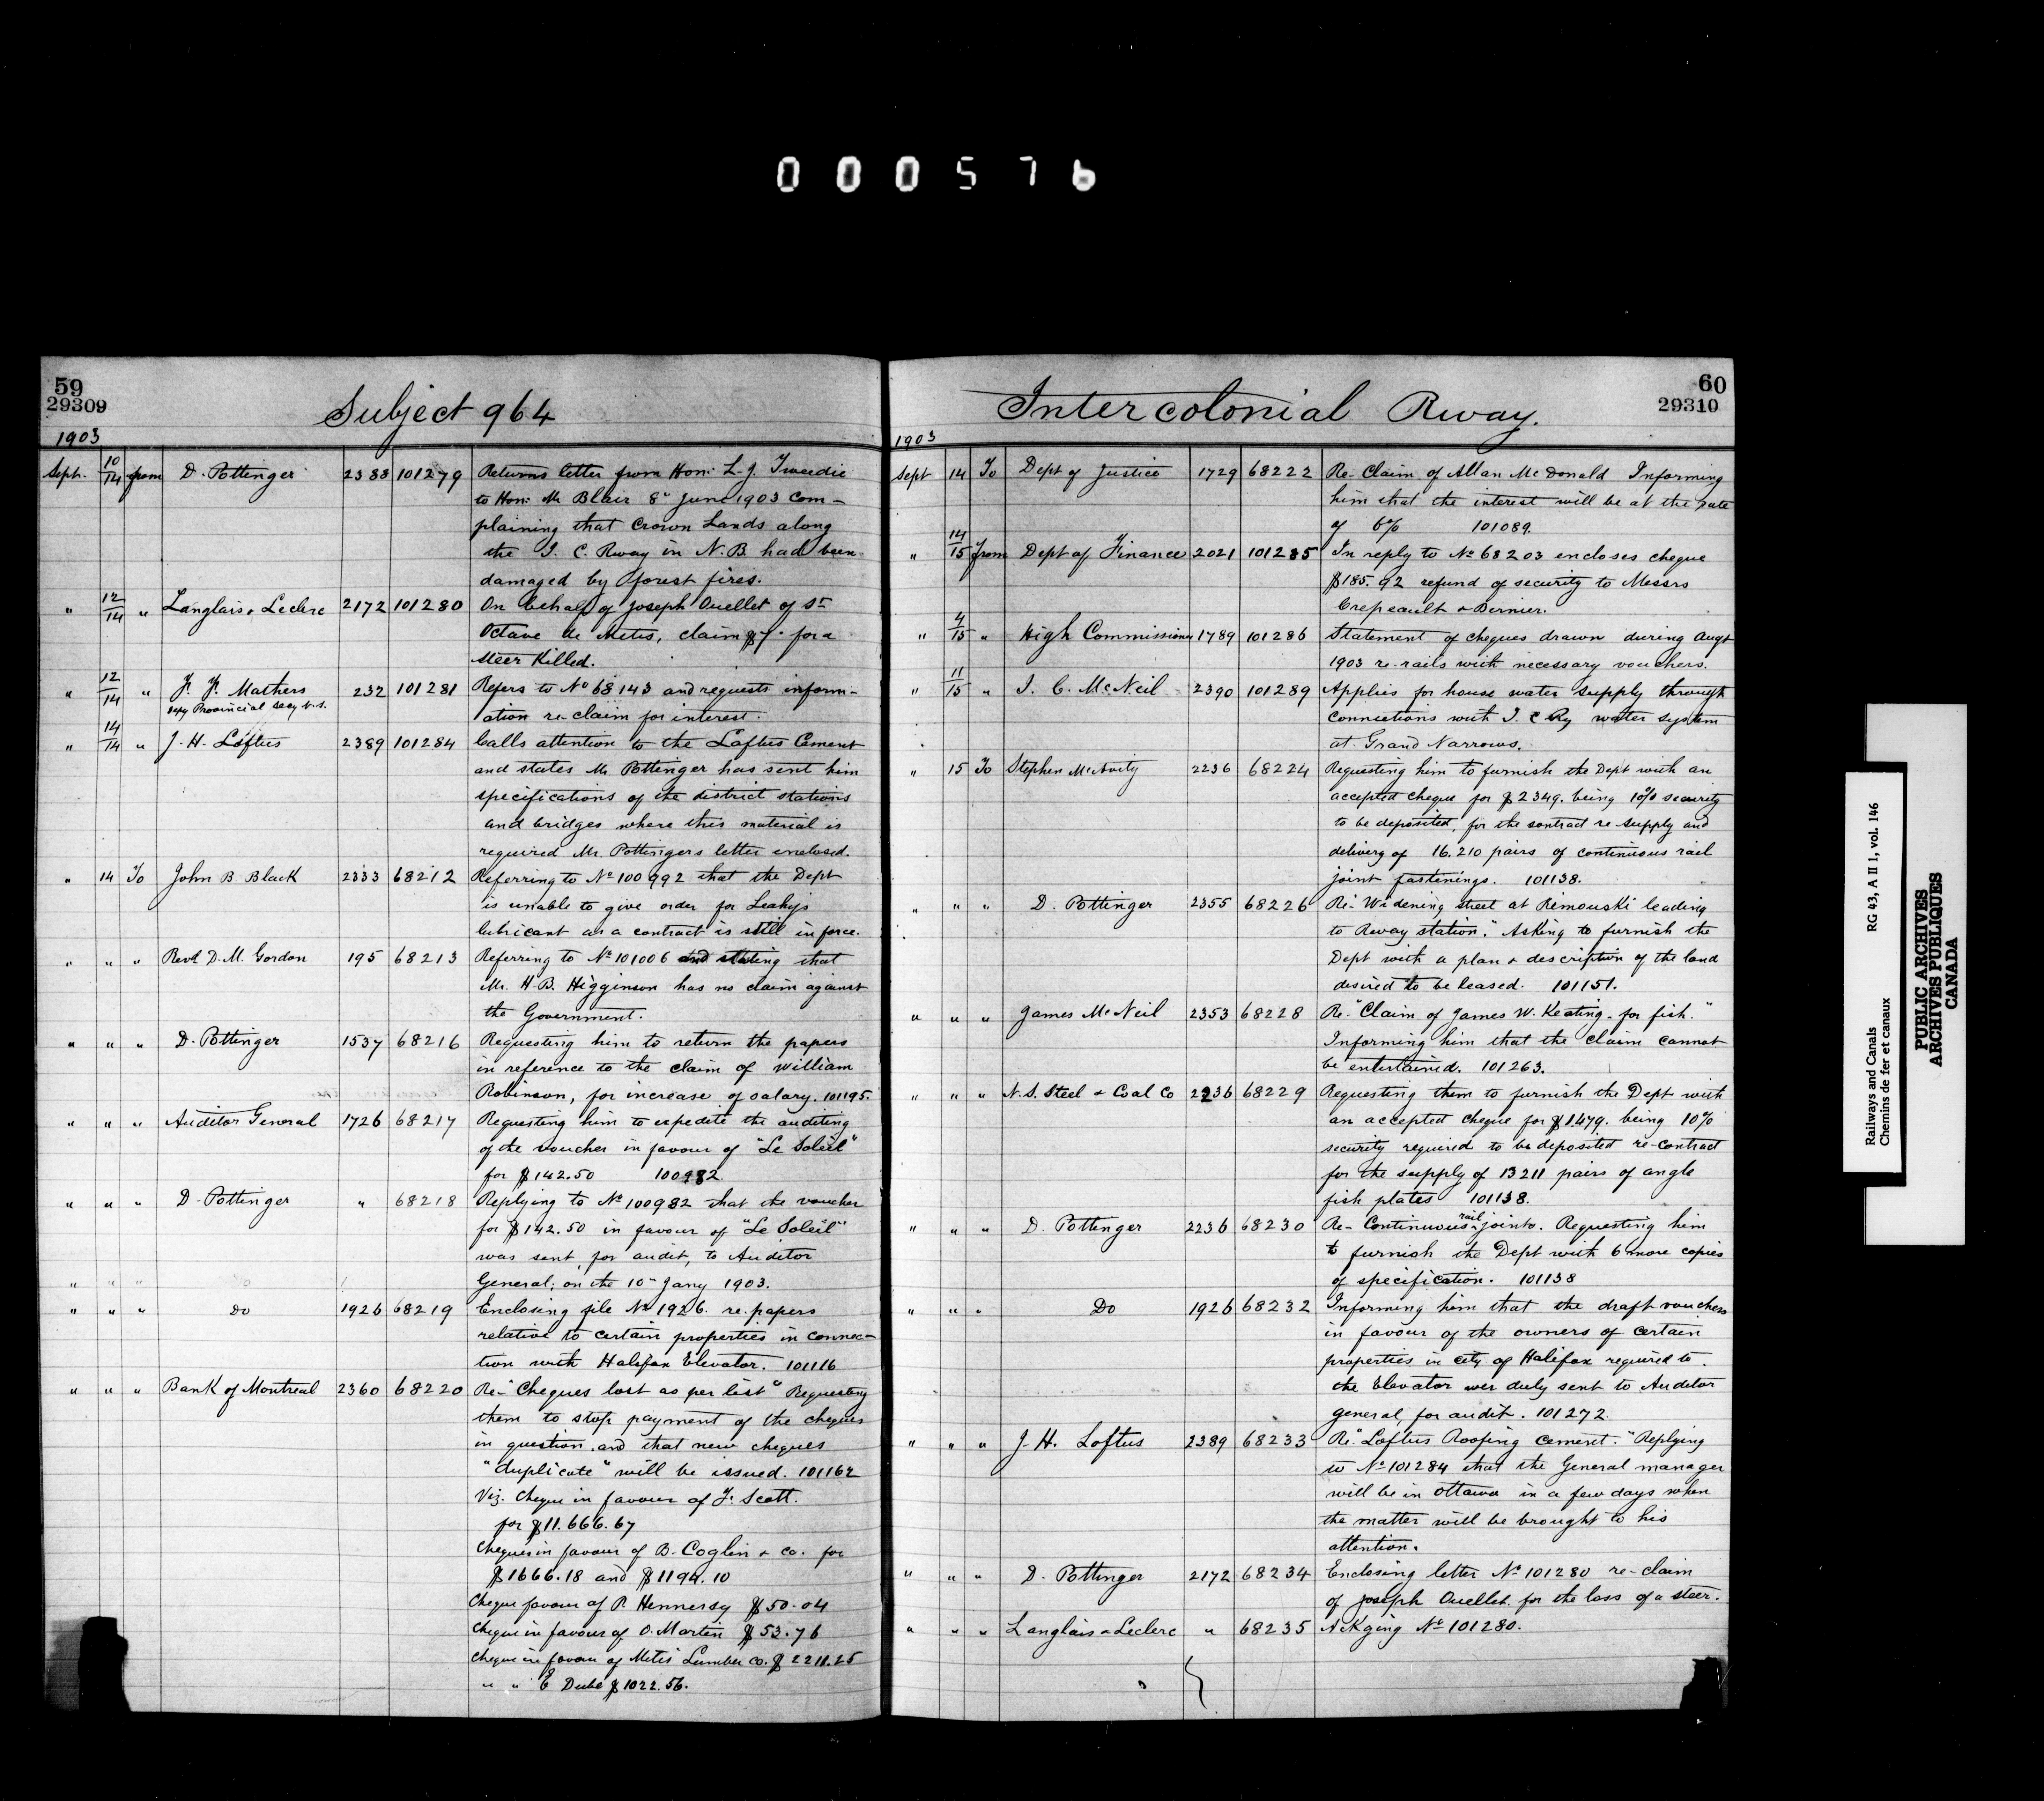 000576
59
29309
Subject 964
1903
Sept. 10/14 from D. Pottinger 2388 101279 Returns letter from Hon: L. J. Tweedie
to Hon: Mr Blair 8" June 1903 com-
plaining that Crown Lands along
the I. C. Rway in N.B. had been
damaged by forest fires.
" 12/14 " Langlais & Leclerc 2172 101280 On behalf of Joseph Ouellet of St
Octave de Metis, claim for a
steer killed.
" 12/14 " F. F. Mathers 232 101281 Refers to No 68143 and requests inform-
Depy Provincial Secy N.S. ation re-claim for interest.
" 14/14 " J. H. Loftus 2389 101284 Calls attention to the Loftus Cement
and states Mr Pottinger has sent him
specifications of the district stations
and bridges where this material is
required Mr. Pottingers letter enclosed.
" 14 To John B Black 2333 68212 Referring to No 100992 that the Dept
is unable to give order for Leahys
lubricant as a contract is still in force.
" " " Revd D. M. Gordon 195 68213 Referring to No 101006 and stating that
Mr. H. B. Higginson has no claim against
the Government.
" " " D. Pottinger 1537 68216 Requesting him to return the papers
in reference to the claim of William
Robinson, for increase of salary. 101195.
" " " Auditor General 1726 68217 Requesting him to expedite the auditing
of the voucher in favour of "Le Soleil"
for $142.50 100982
" " " D. Pottinger " 68218 Replying to No 100982 that the voucher
for $142.50 in favour of "Le Soleil"
was sent, for audit, to Auditor
General; on the 10" Jany 1903.
" " " Do 1926 68219 Enclosing file No 1926. re. papers
relative to certain properties in connec-
tion with Halifax Elevator. 101116
" " " Bank of Montreal 2360 68220 Re-"Cheques lost as per list" Requesting
them to stop payment of the cheques
in question and that new cheques
"duplicate" will be issued. 101162
Viz. Cheque in favour of F. Scott.
for $11.666.67
Cheques in favour of B. Coglin & Co. for
$1666.18 and $1194.10
Cheque favour of P. Hennersy $50.04
Cheque in favour of O. Martin $53.76
Cheque in favour of Metis Lumber Co. $2211.25
" " E Dubé $1022.56.
60
29310
Intercolonial Rway.
1903
Sept 14 To Dept of Justice 1729 68222 Re- Claim of Allan McDonald Informing
him that the interest will be at the rate
of 6% 101089.
" 14/15 from Dept of Finance 2021 101285 In reply to No 68203 encloses cheque
$185.92 refund of security to Messrs
Crepeault & Bernier.
" 4/15 " High Commissioner 1789 101286 Statement of cheques drawn during Augt
1903 re-rails with necessary vouchers.
" 11/15 " J. C. McNeil 2390 101289 Applies for house water supply through
connections with I. C Ry water system
at Grand Narrows.
" 15 To Stephen McAvity 2236 68224 Requesting him to furnish the Dept with an
accepted cheque for $2349. being 10% security
to be deposited, for the contract re supply and
delivery of 16.210 pairs of continuous rail
joint fastenings. 101138.
" " " D. Pottinger 2355 68226 Re-"Widening street at Rimouski leading
to Rway station." Asking to furnish the
Dept with a plan & description of the land
desired to be leased. 101151.
" " " James McNeil 2353 68228 Re-"Claim of James W. Keating - for fish."
Informing him that the claim cannot
be entertained. 101263.
" " " N.S. Steel & Coal Co 2236 68229 Requesting them to furnish the Dept with
an accepted cheque for $1479. being 10%
security required to be deposited re-contract
for the supply of 13211 pairs of angle
fish plates 101138.
" " " D. Pottinger 2236 68230 Re- Continuous rail joints. Requesting him
to furnish the Dept with 6 more copies
of specification. 101138
" " " Do 1926 68232 Informing him that the draft vouchers
in favour of the owners of certain
properties in city of Halifax required to
the Elevator wer duly sent to Auditor
General, for audit. 101272.
" " " J. H. Loftus 2389 68233 Re "Loftus Roofing cement." Replying
to No 101284 that the General manager
will be in Ottawa in a few days when
the matter will be brought to his
attention.
" " " D. Pottinger 2172 68234 Enclosing letter No 101280 re-claim
of Joseph Ouellet for the loss of a steer.
" " " Langlais & Leclerc " 68235 Ackging No 101280.
Railways and Canals RG 43, A II 1, vol. 146
Chemins de fer et canaux
PUBLIC ARCHIVES
ARCHIVES PUBLIQUES
CANADA